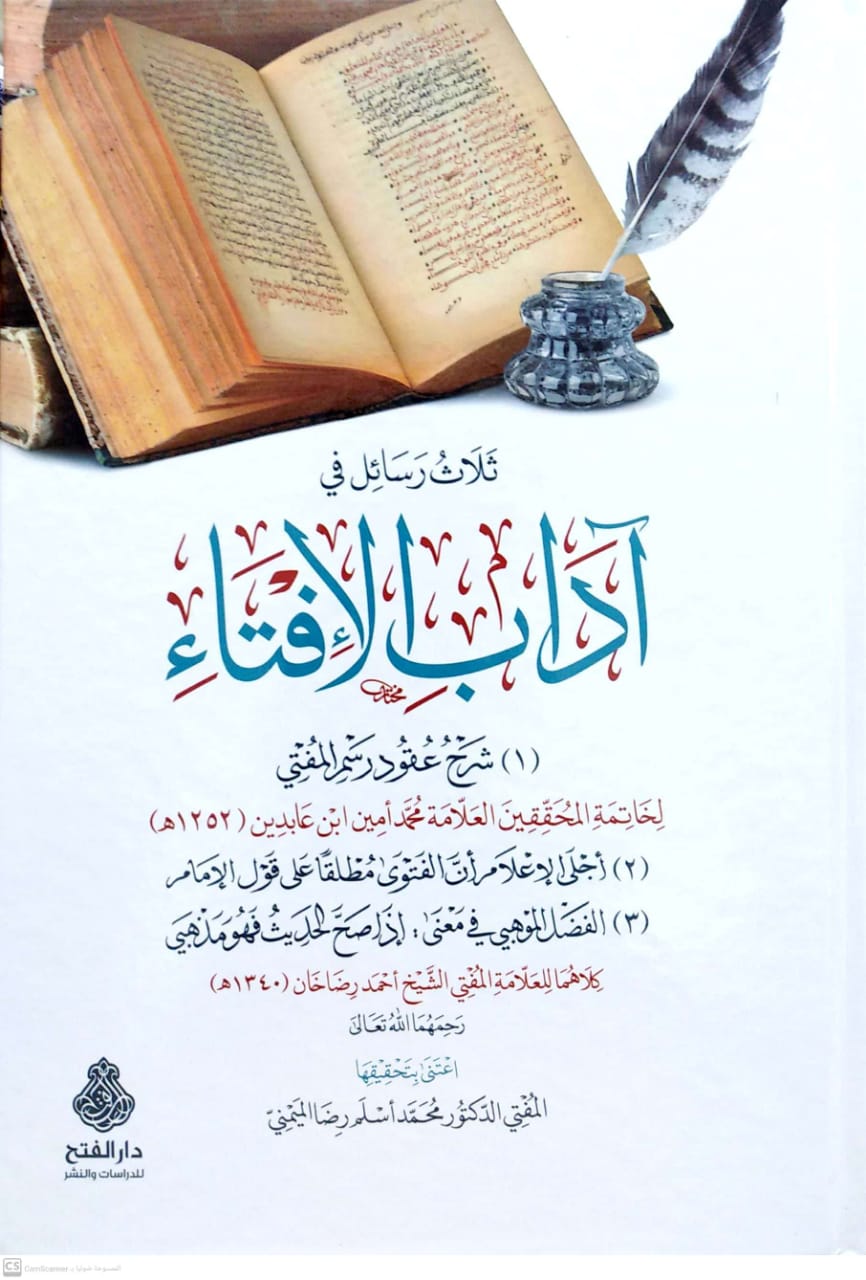 ثَلَاثُ رَسَائِل فِي
آدَابِ الإِفْتَاءِ
(١) شَرْحُ عُقُود رَسْمِ المُفْتِي
لِخَاتِمَةِ المُحَقِّقِينَ العَلَّامَة مُحَمَّد أمِين ابْن عَابدِين (١٢٥٢هـ)
(٢) أجْلَى الإعْلَام أنَّ الفَتْوَى مُطْلَقًا عَلى قَوْل الإمَام
(٣) الفَضْل المَوْهِبي في مَعْنَى: إذَا صَحَّ الحَدِيثُ فَهُوَ مَذْهَبِي
كِلَاهُمَا لِلعَلَّامَةِ المُفْتِي الشَّيْخ أحْمَد رِضَا خَان (١٣٤٠هـ)
رَحِمَهُمَا اللهُ تَعَالَى
اعْتَنَى بِتَحْقِيْقِهَا
المُفْتِي الدّكتُور مُحَمَّد أسْلَم رِضَا المَيْمَنِيّ
دار الفتح
للدراسات والنشر
CS CamScanner الممسوحة ضوئيا بـ